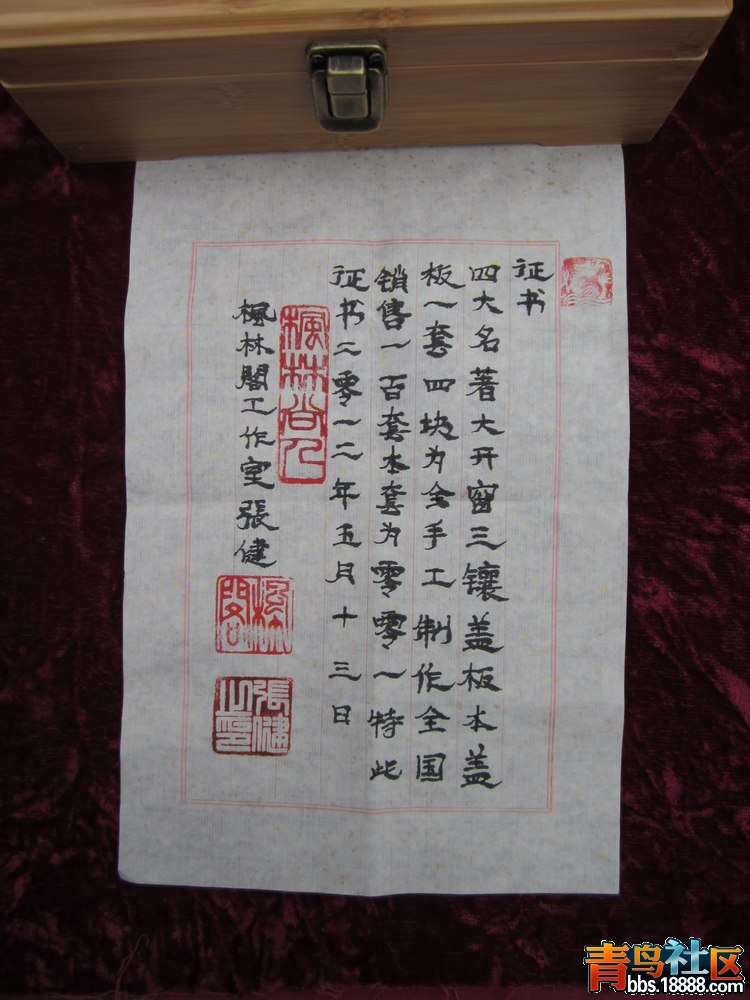 证书
四大名著大开窗三镶盖板本盖
板一套四块为全手工制作全国
销售一百套本套为零零一特此
证书二零一二年五月十三日
楓林閣工作室張健
楓林
張健之
青鸟社区
bbs.18888.com